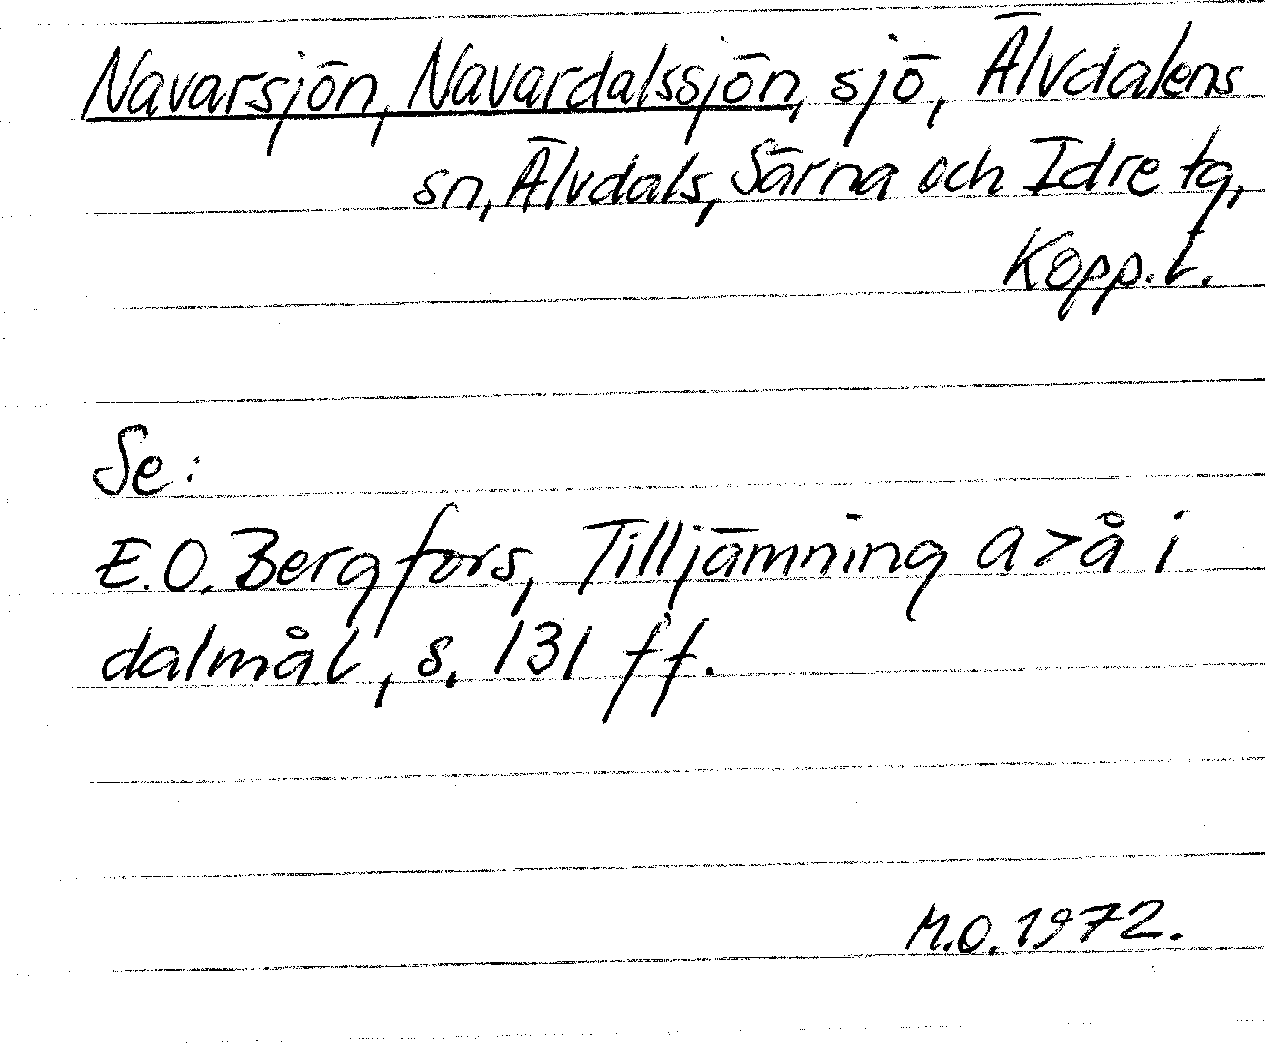 Navarsjön, Navardalssjön, sjö, Älvdalens
sn, Älvdals, Särna och Idre tg,
Kopp.l.
Se:
E.O. Bergfors, Tilljämning a>å i
dalmål, s. 131 ff.
M.O. 1972.